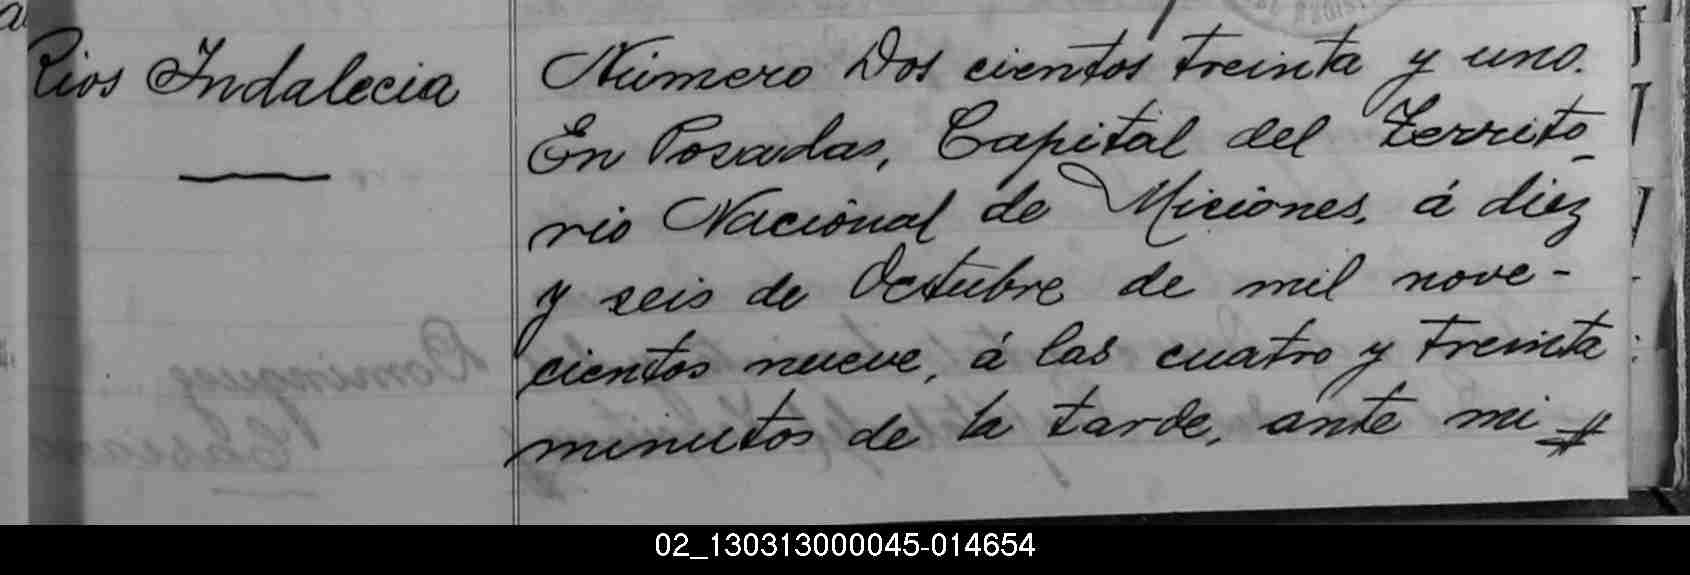 Rios Indalecia
Número Dos cientos treinta y uno.
En Posadas, Capital del Territo-
rio Nacional de Miciones, á diez
y seis de Octubre de mil nove-
cientos nueve, á las cuatro y treinta
minutos de la tarde, ante mi
02_130313000045-014654